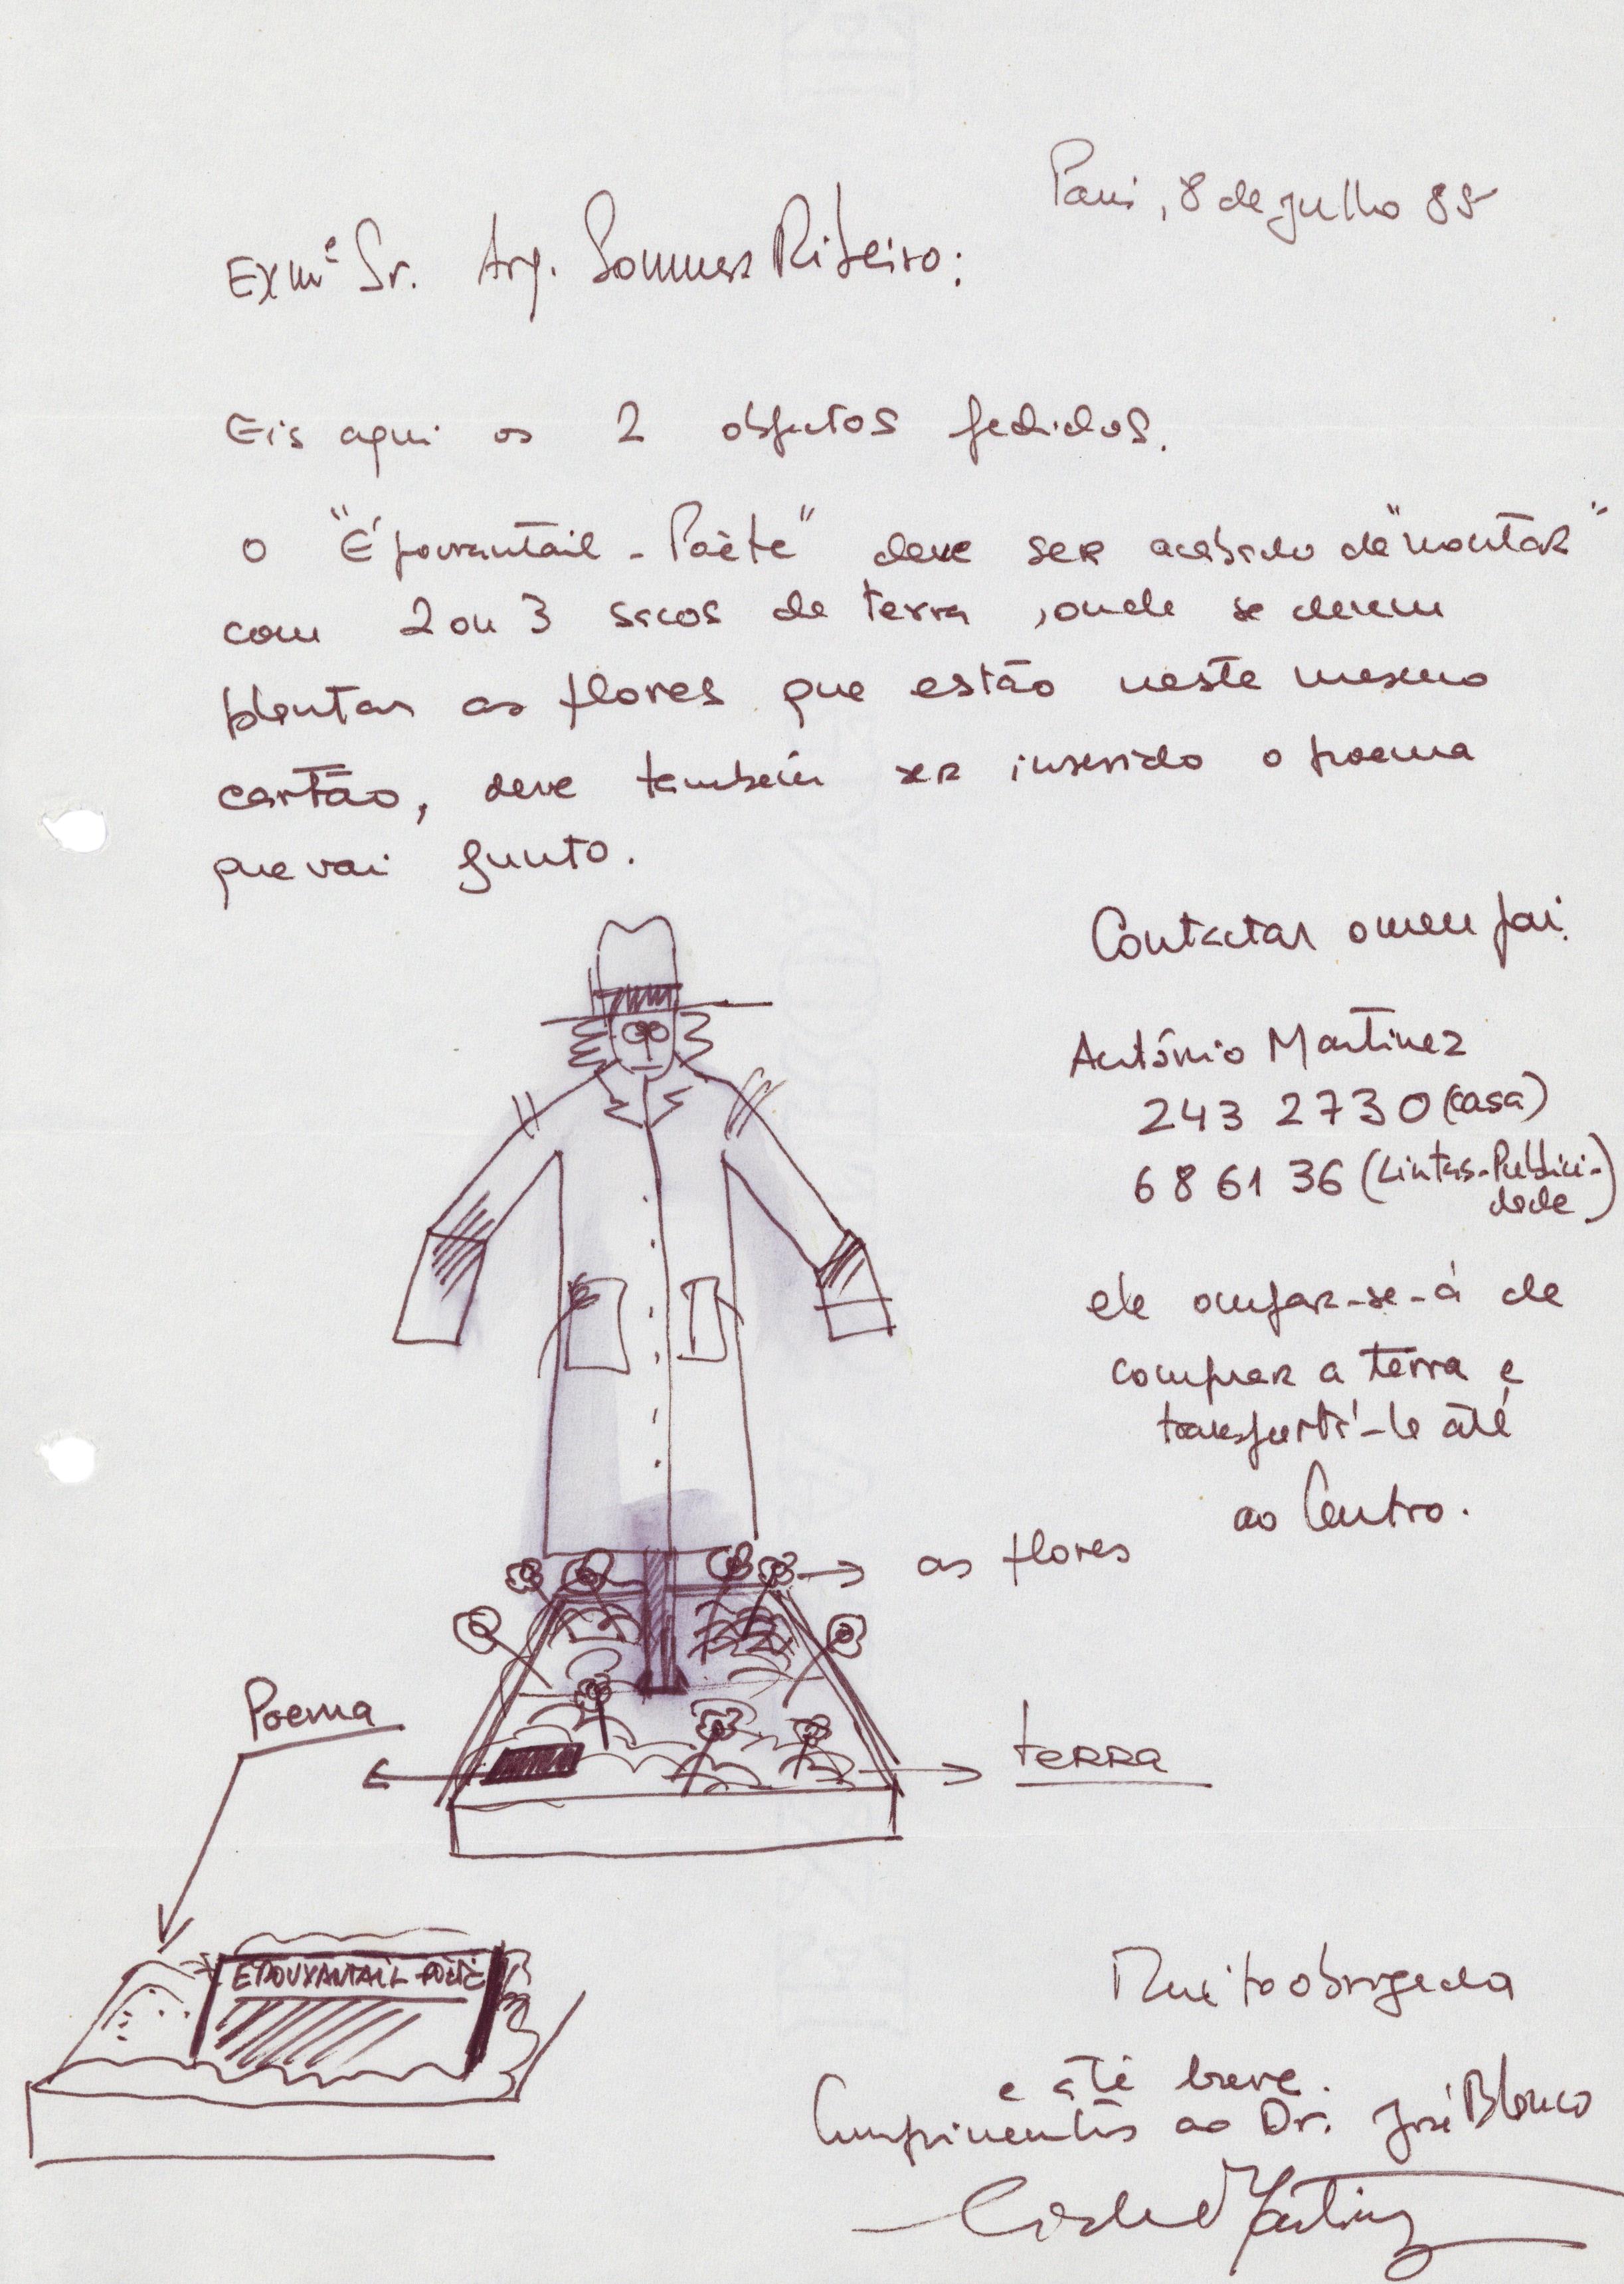 Paris, 8 de Julho 85
Exmº Sr. Arq. Sommer Ribeiro:
Eis aqui os 2 objectos pedidos.
O "Épouvantail - Poète" deve ser acabado de "montar"
com 2 ou 3 sacos de terra, onde se devem
plantar as flores que estão neste mesmo
cartão, deve também ser inserido o poema
que vai junto.
Contactar o meu pai:
António Martinez
243 2730 (casa)
68 61 36 (Lintas-Publici-
dade)
ele ocupar-se-á de
comprar a terra e
transportá-la até
ao Centro.
as flores
Poema
terra
EPOUVANTAIL POÈTE
Muito obrigada
e até breve.
Cumprimentos ao Dr. José Blanco
Martinez